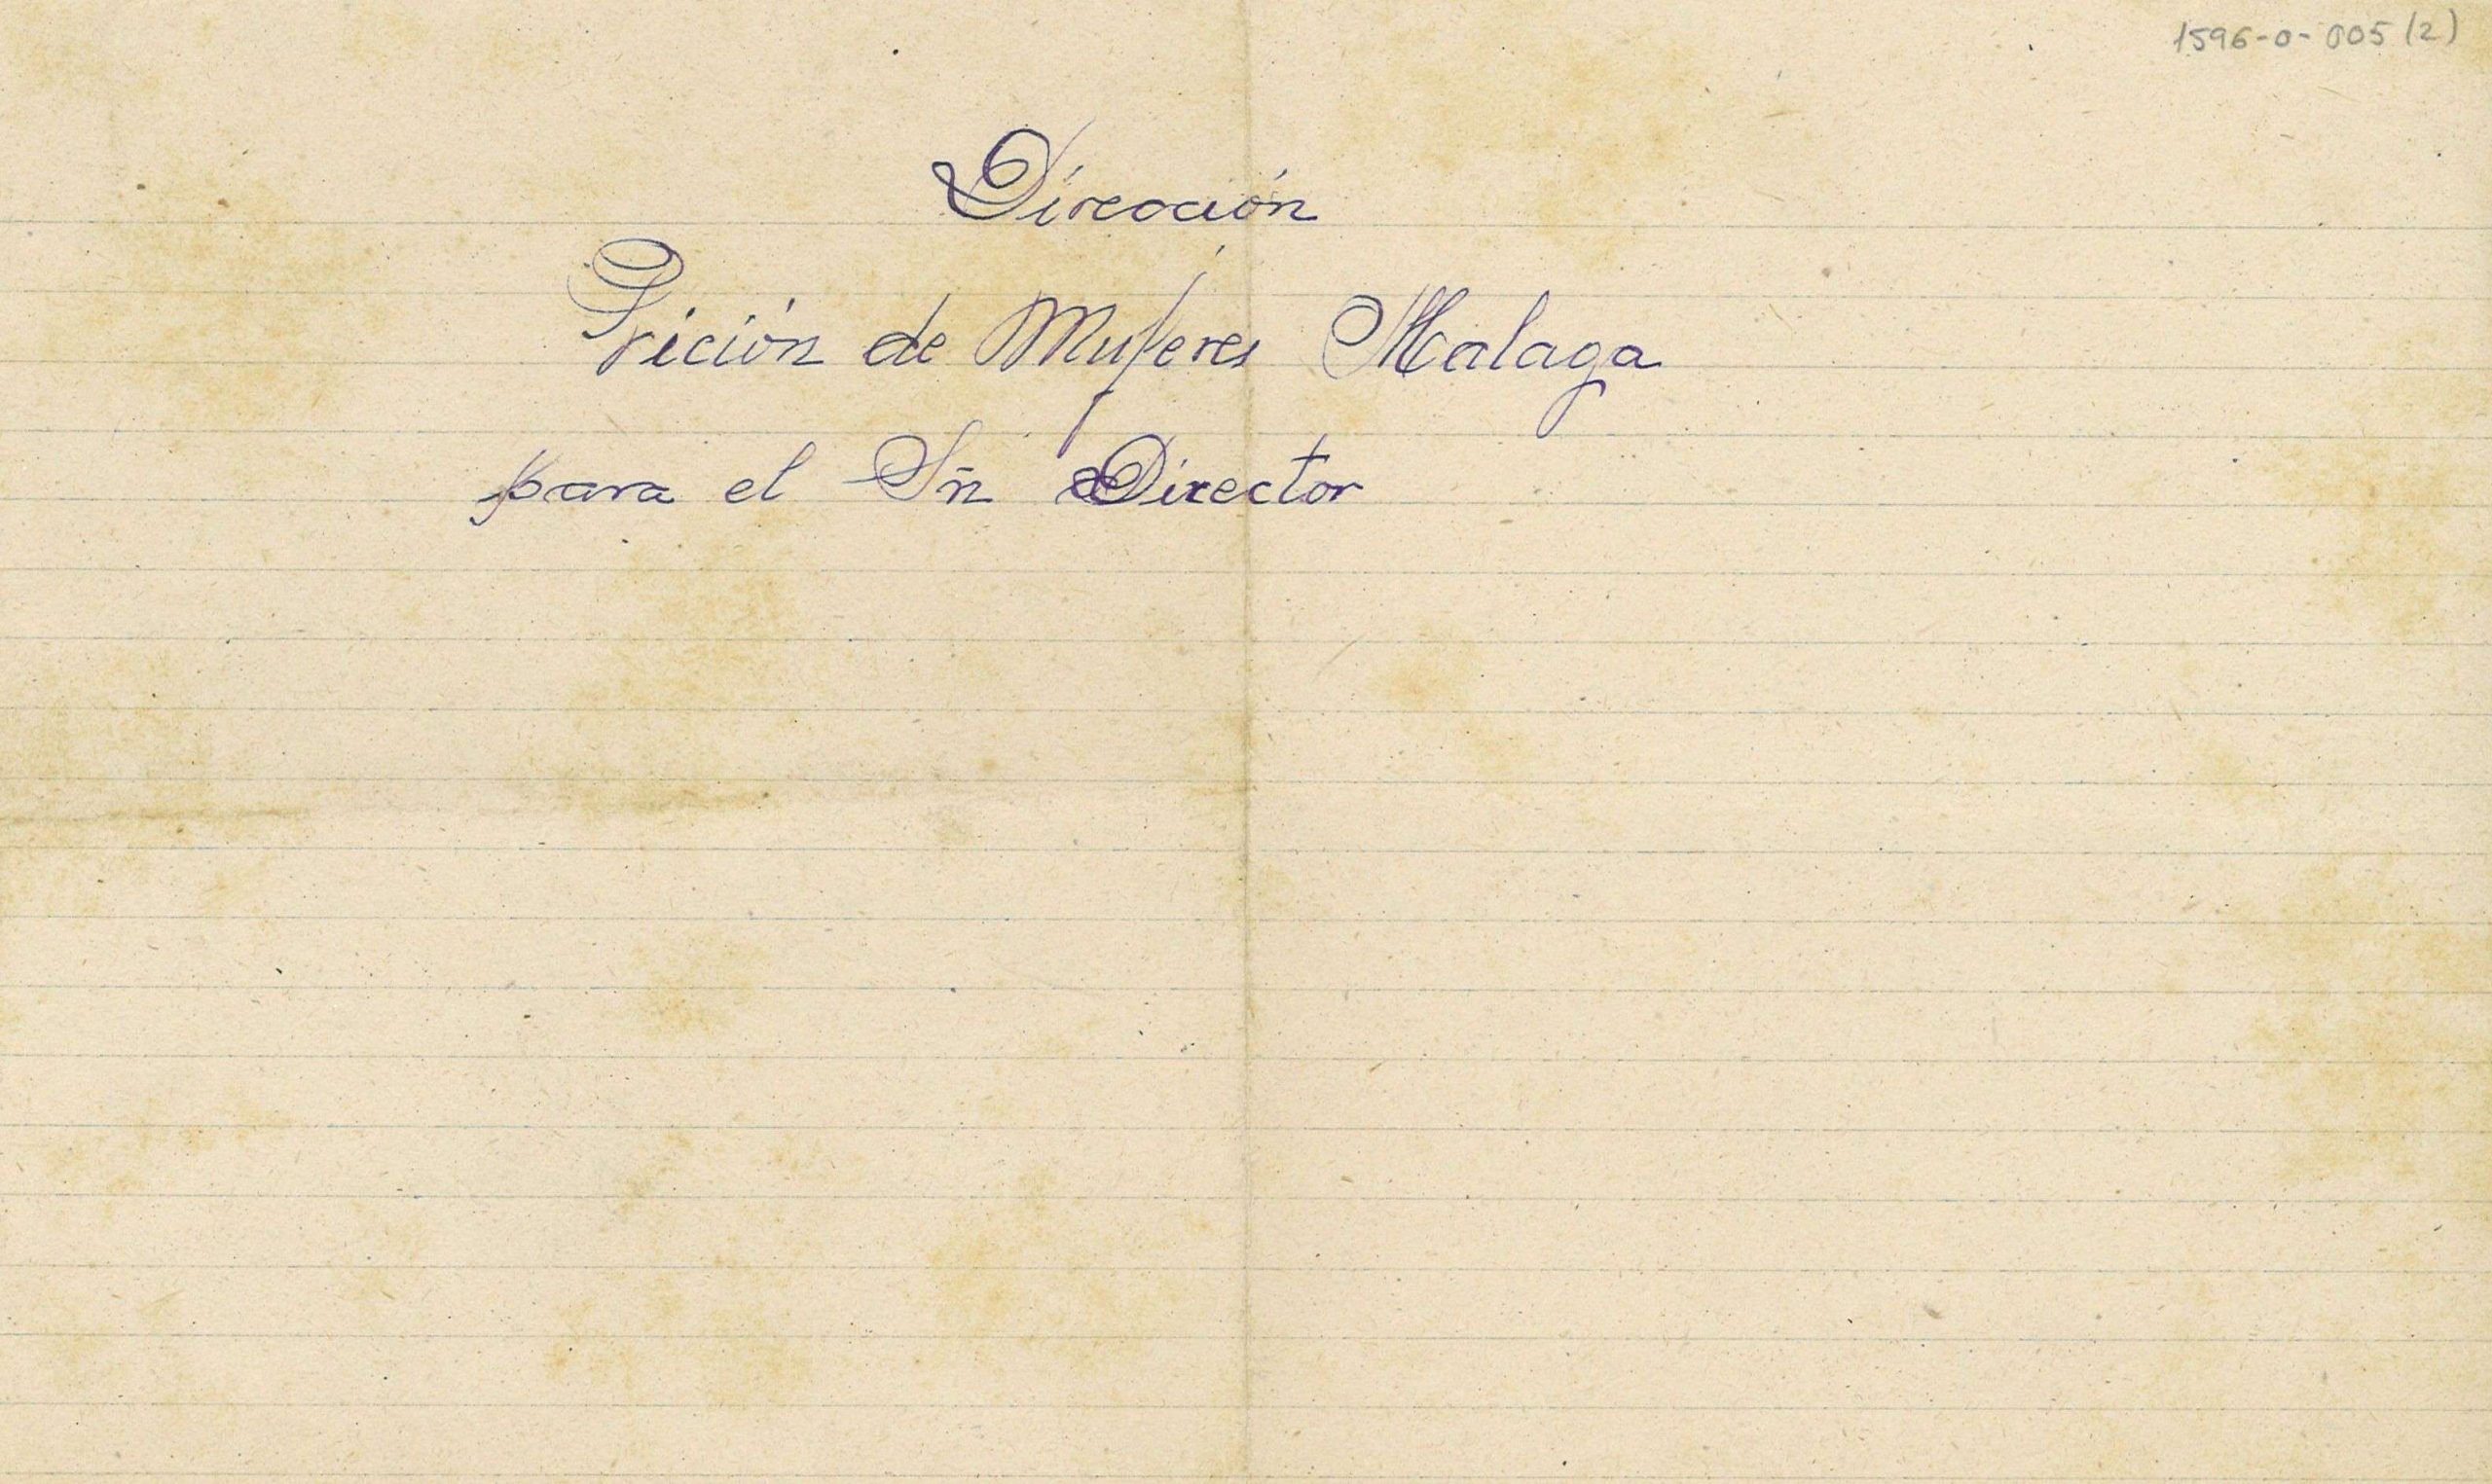 1596-0-005 (2)
Dirección
Prición de Mujeres Malaga
para el Sñ Director